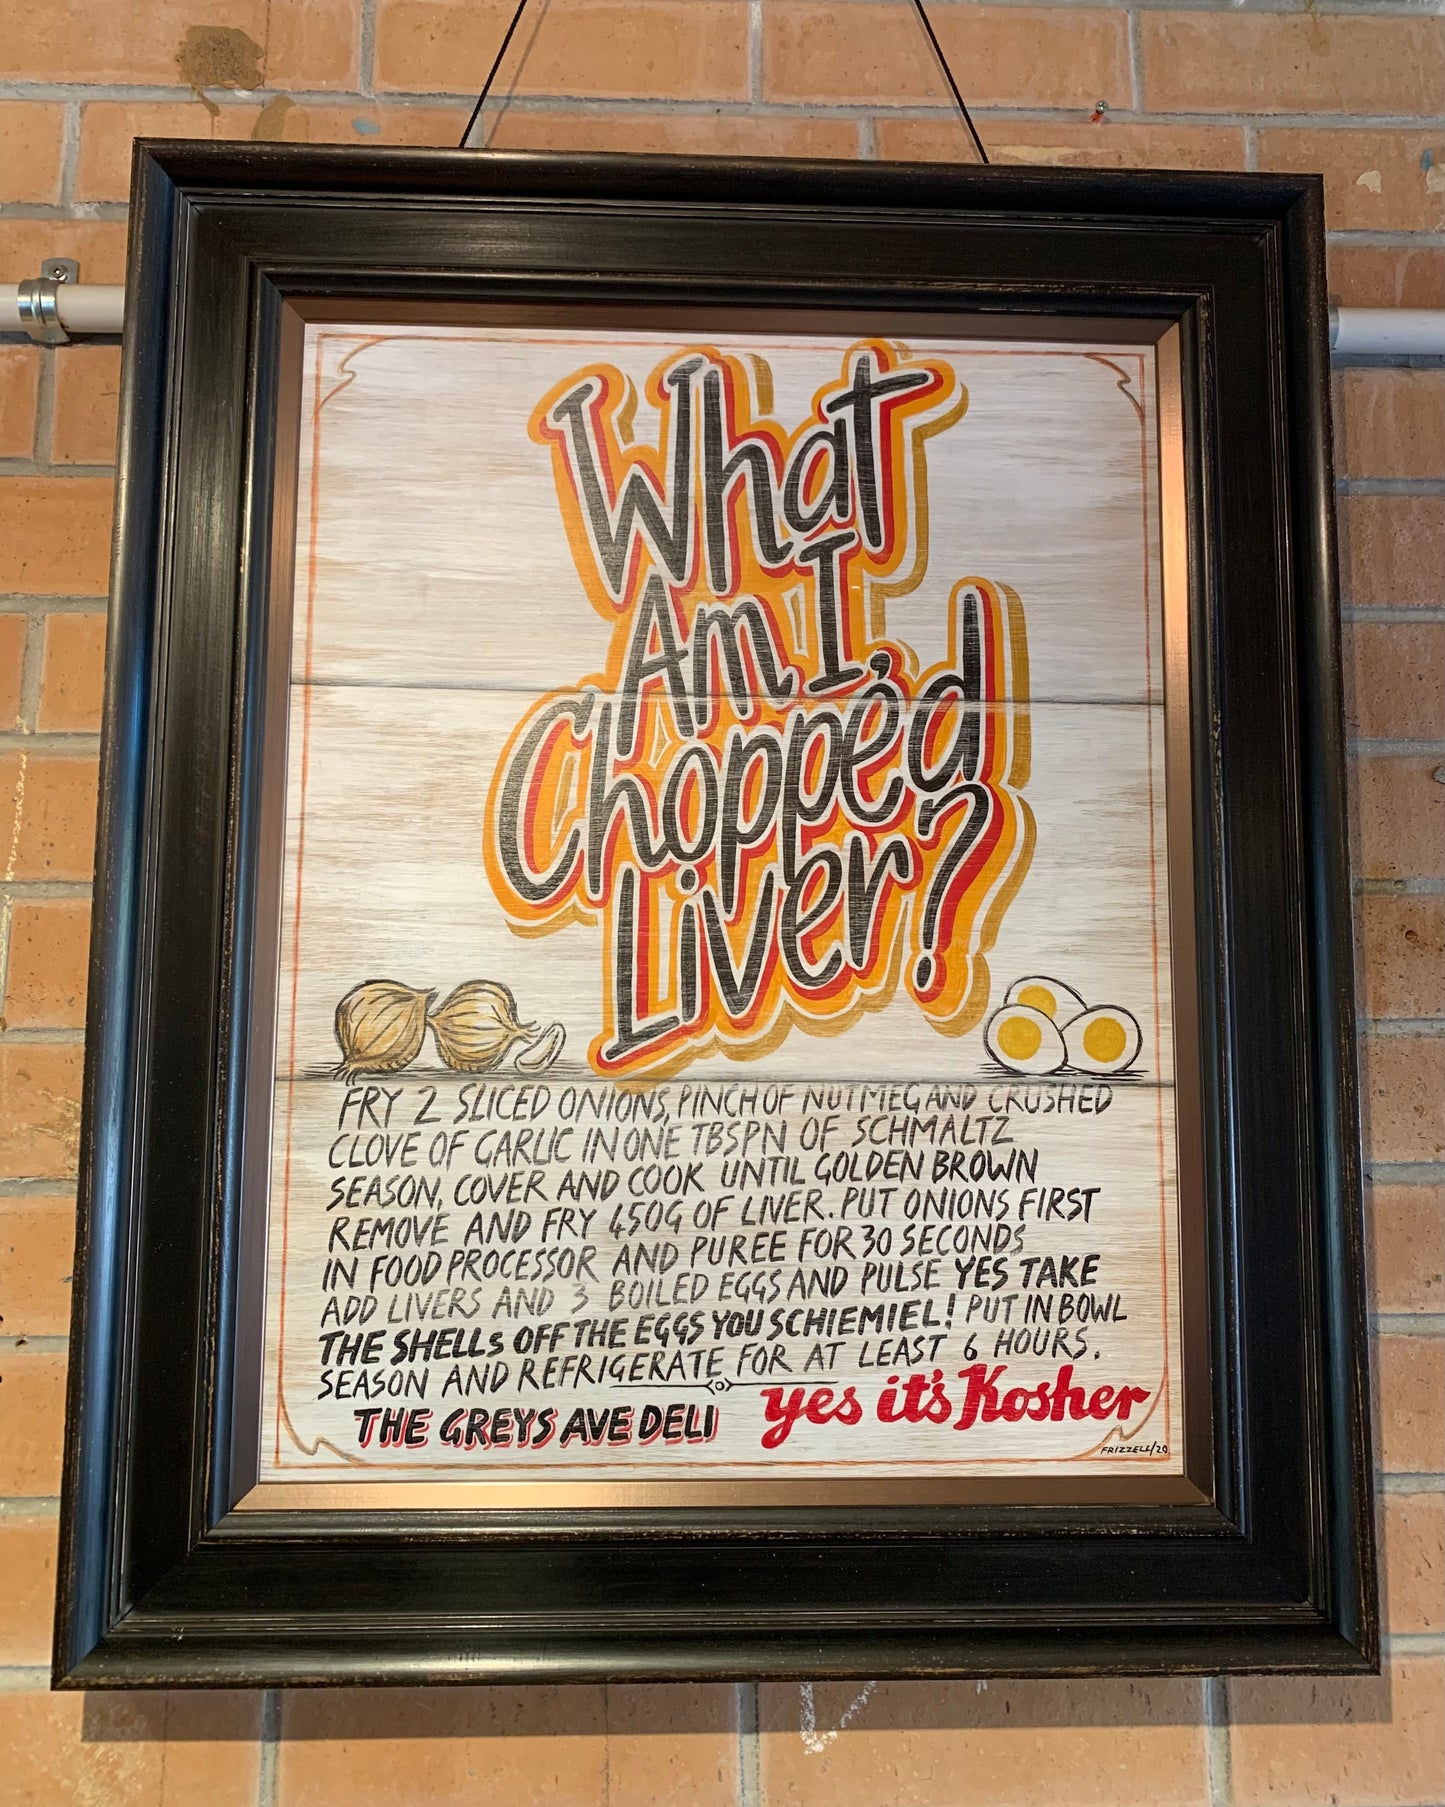 What
Am I,
Chopped
Liver?
FRY 2 SLICED ONIONS, PINCH OF NUTMEG AND CRUSHED
CLOVE OF GARLIC IN ONE TBSPN OF SCHMALTZ
SEASON, COVER AND COOK UNTIL GOLDEN BROWN
REMOVE AND FRY 450G OF LIVER. PUT ONIONS FIRST
IN FOOD PROCESSOR AND PUREE FOR 30 SECONDS
ADD LIVERS AND 3 BOILED EGGS AND PULSE YES TAKE
THE SHELLS OFF THE EGGS YOU SCHIEMIEL! PUT IN BOWL
SEASON AND REFRIGERATE FOR AT LEAST 6 HOURS.
THE GREYS AVE DELI yes it's Kosher
FRIZZELL/20